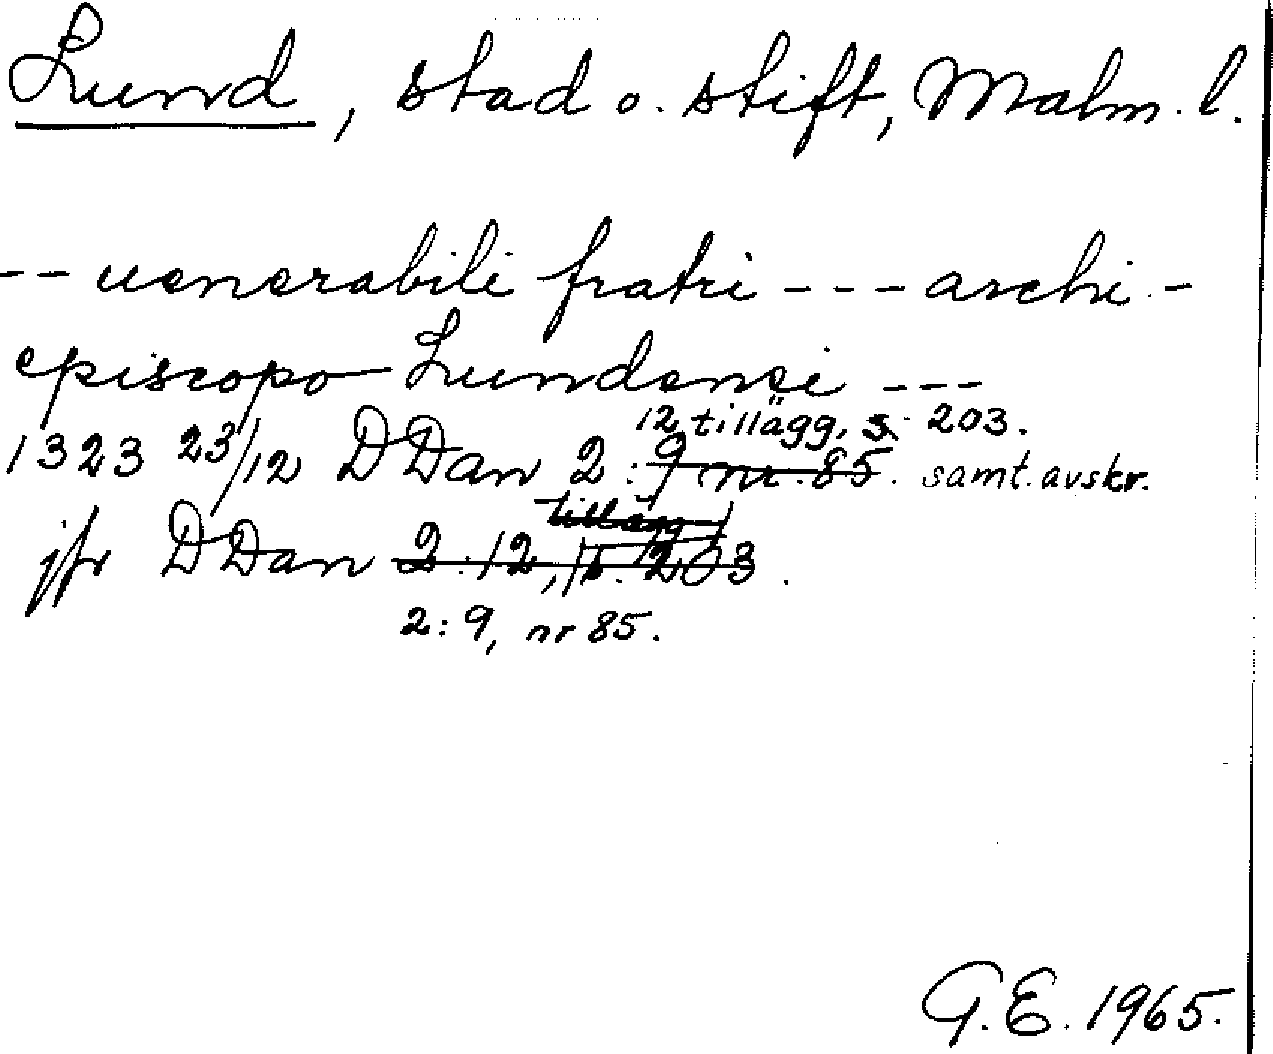 Lund, stad o. stift, Malm. l.
-- uenerabili fratri --- archi-
episcopo Lundensi ---
12 tillägg, s. 203.
1323 23/12 DDan 2: 9 nr. 85. samt. avskr.
tillägg
jfr DDan 2. 12, s. 203.
2: 9, nr 85.
G.E. 1965.